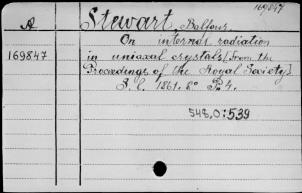 169847
A Stewart, Balfour.
On internal radiation
169847 in uniaxal crystals [From the
Proceedings of the Royal Society].
1861. 8°
548,0:539